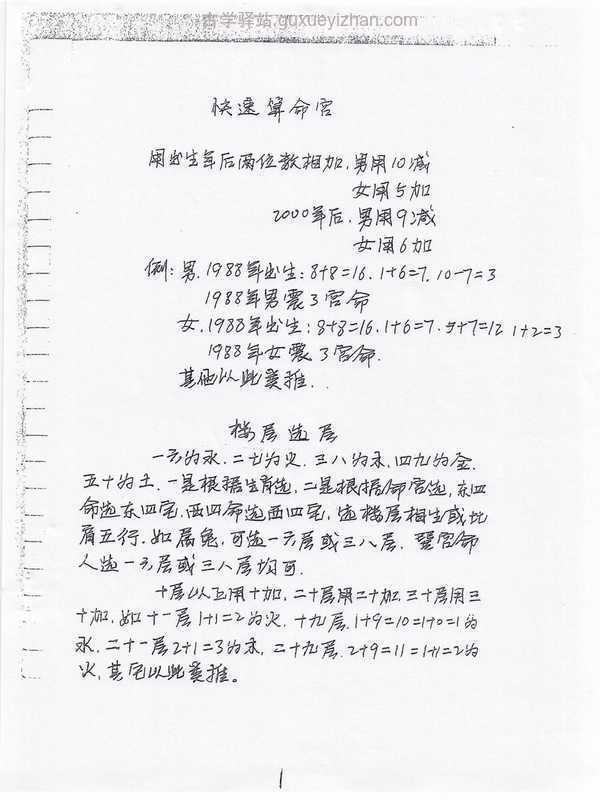 古学驿站.guxueyizhan.com
快速算命宫
用出生年后两位数相加,男用10减
女用5加
2000年后,男用9减
女用6加
例:男,1988年出生:8+8=16.1+6=7,10-7=3
1988年男震3宫命
女,1988年出生:8+8=16.1+6=7.5+7=12 1+2=3
1988年女震3宫命.
其他以此类推..
楼层选层
一六为水,二七为火,三八为木,四九为金,
五十为土,一是根据生肖选,二是根据命宫选,东四
命选东四宅,西四命选西四宅,选楼层相生或比
肩五行.如属兔,可选一六层或三八层. 震宫命
人选一六层或三八层均可.
十层以上用十加,二十层用二十加,三十层用三
十加,如十一层1+1=2为火,十九层,1+9=10=1+0=1为
水,二十一层2+1=3为木,二十九层,2+9=11=1+1=2为
火,其它以此类推。
1